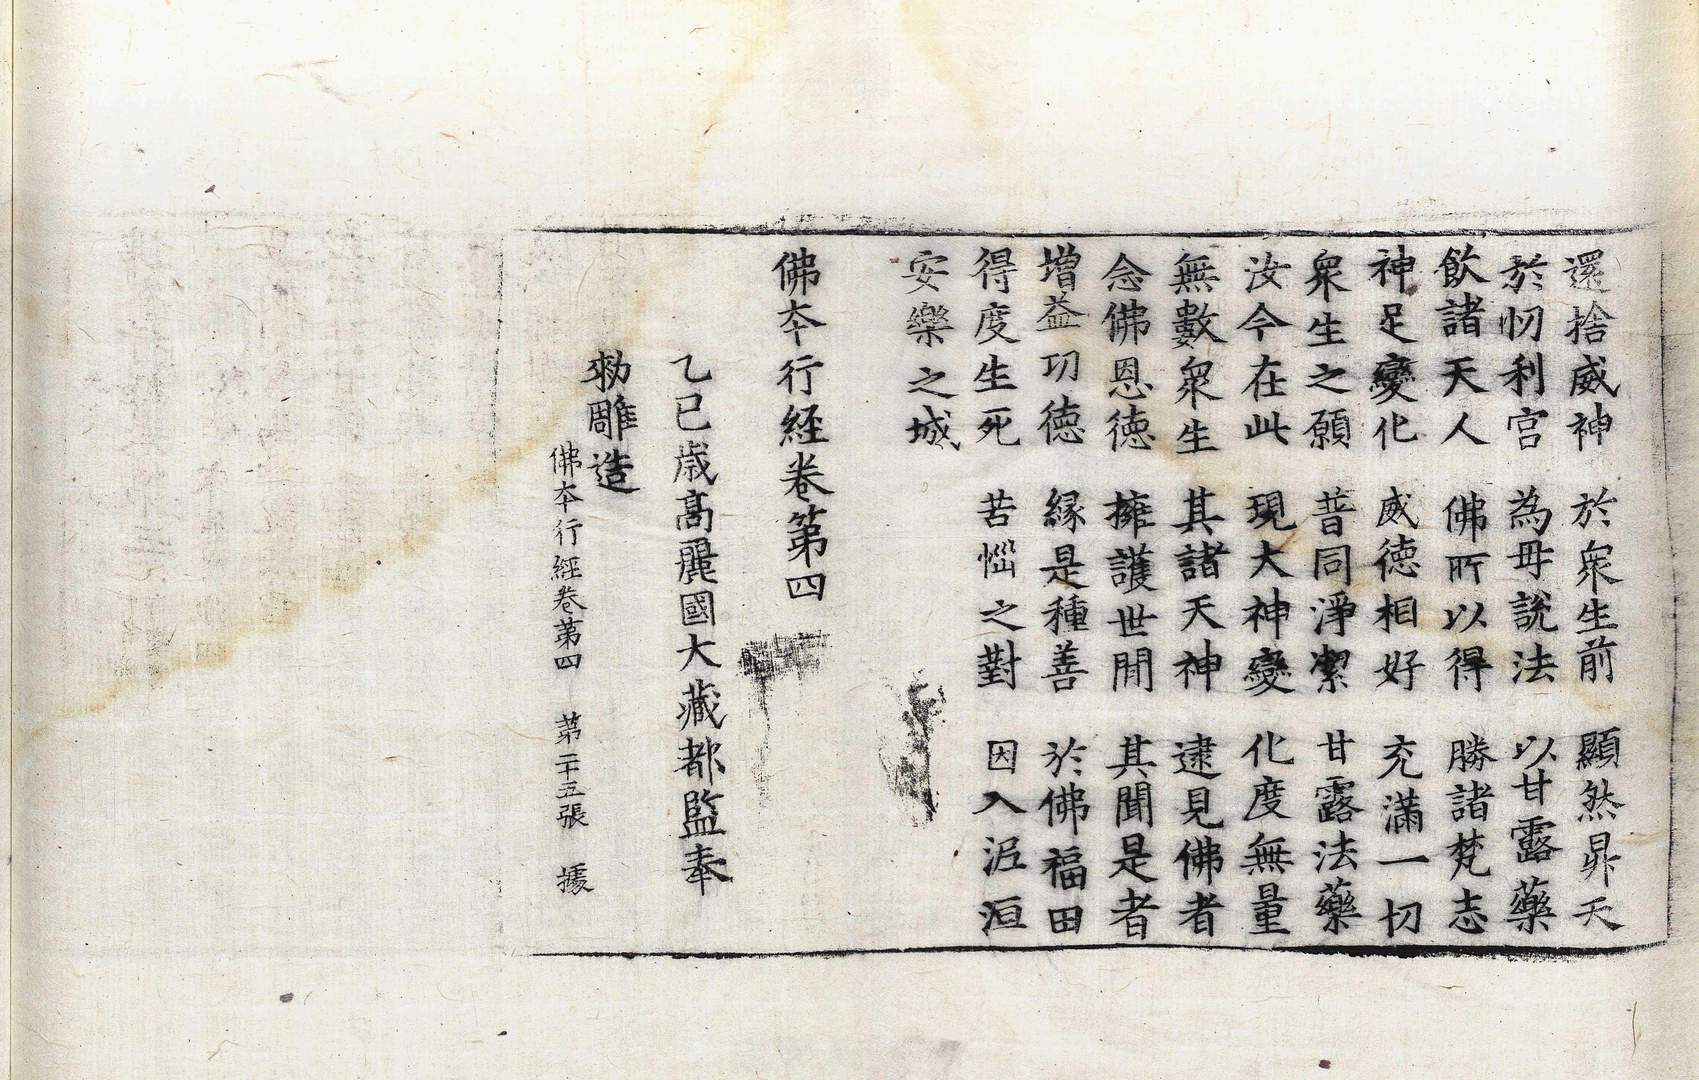 還捨威神　於衆生前　顯然昇天
於忉利宮　為母說法　以甘露藥
飲諸天人　佛所以得　勝諸梵志
神足變化　威德相好　充滿一切
衆生之願　普同淨潔　甘露法藥
汝今在此　現大神變　化度無量
無數衆生　其諸天神　逮見佛者
念佛恩德　擁護世間　其聞是者
增益功德　緣是種善　於佛福田
得度生死　苦惱之對　因入泥洹
安樂之城
佛本行經卷第四
乙巳歲高麗國大藏都監奉
勑雕造
佛本行經卷第四　第二十五張　據